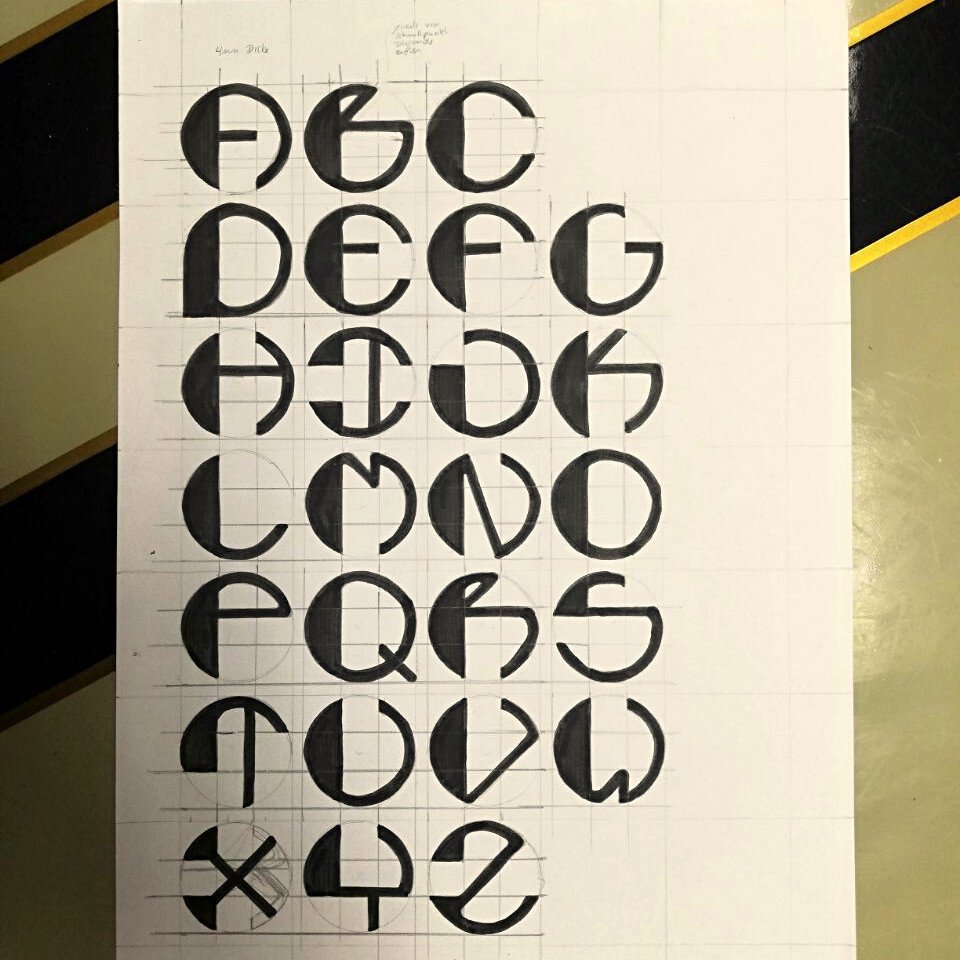 4mm Dicke
ABC
DEFG
HIJK
LMNO
PQRS
TUVW
XYZ